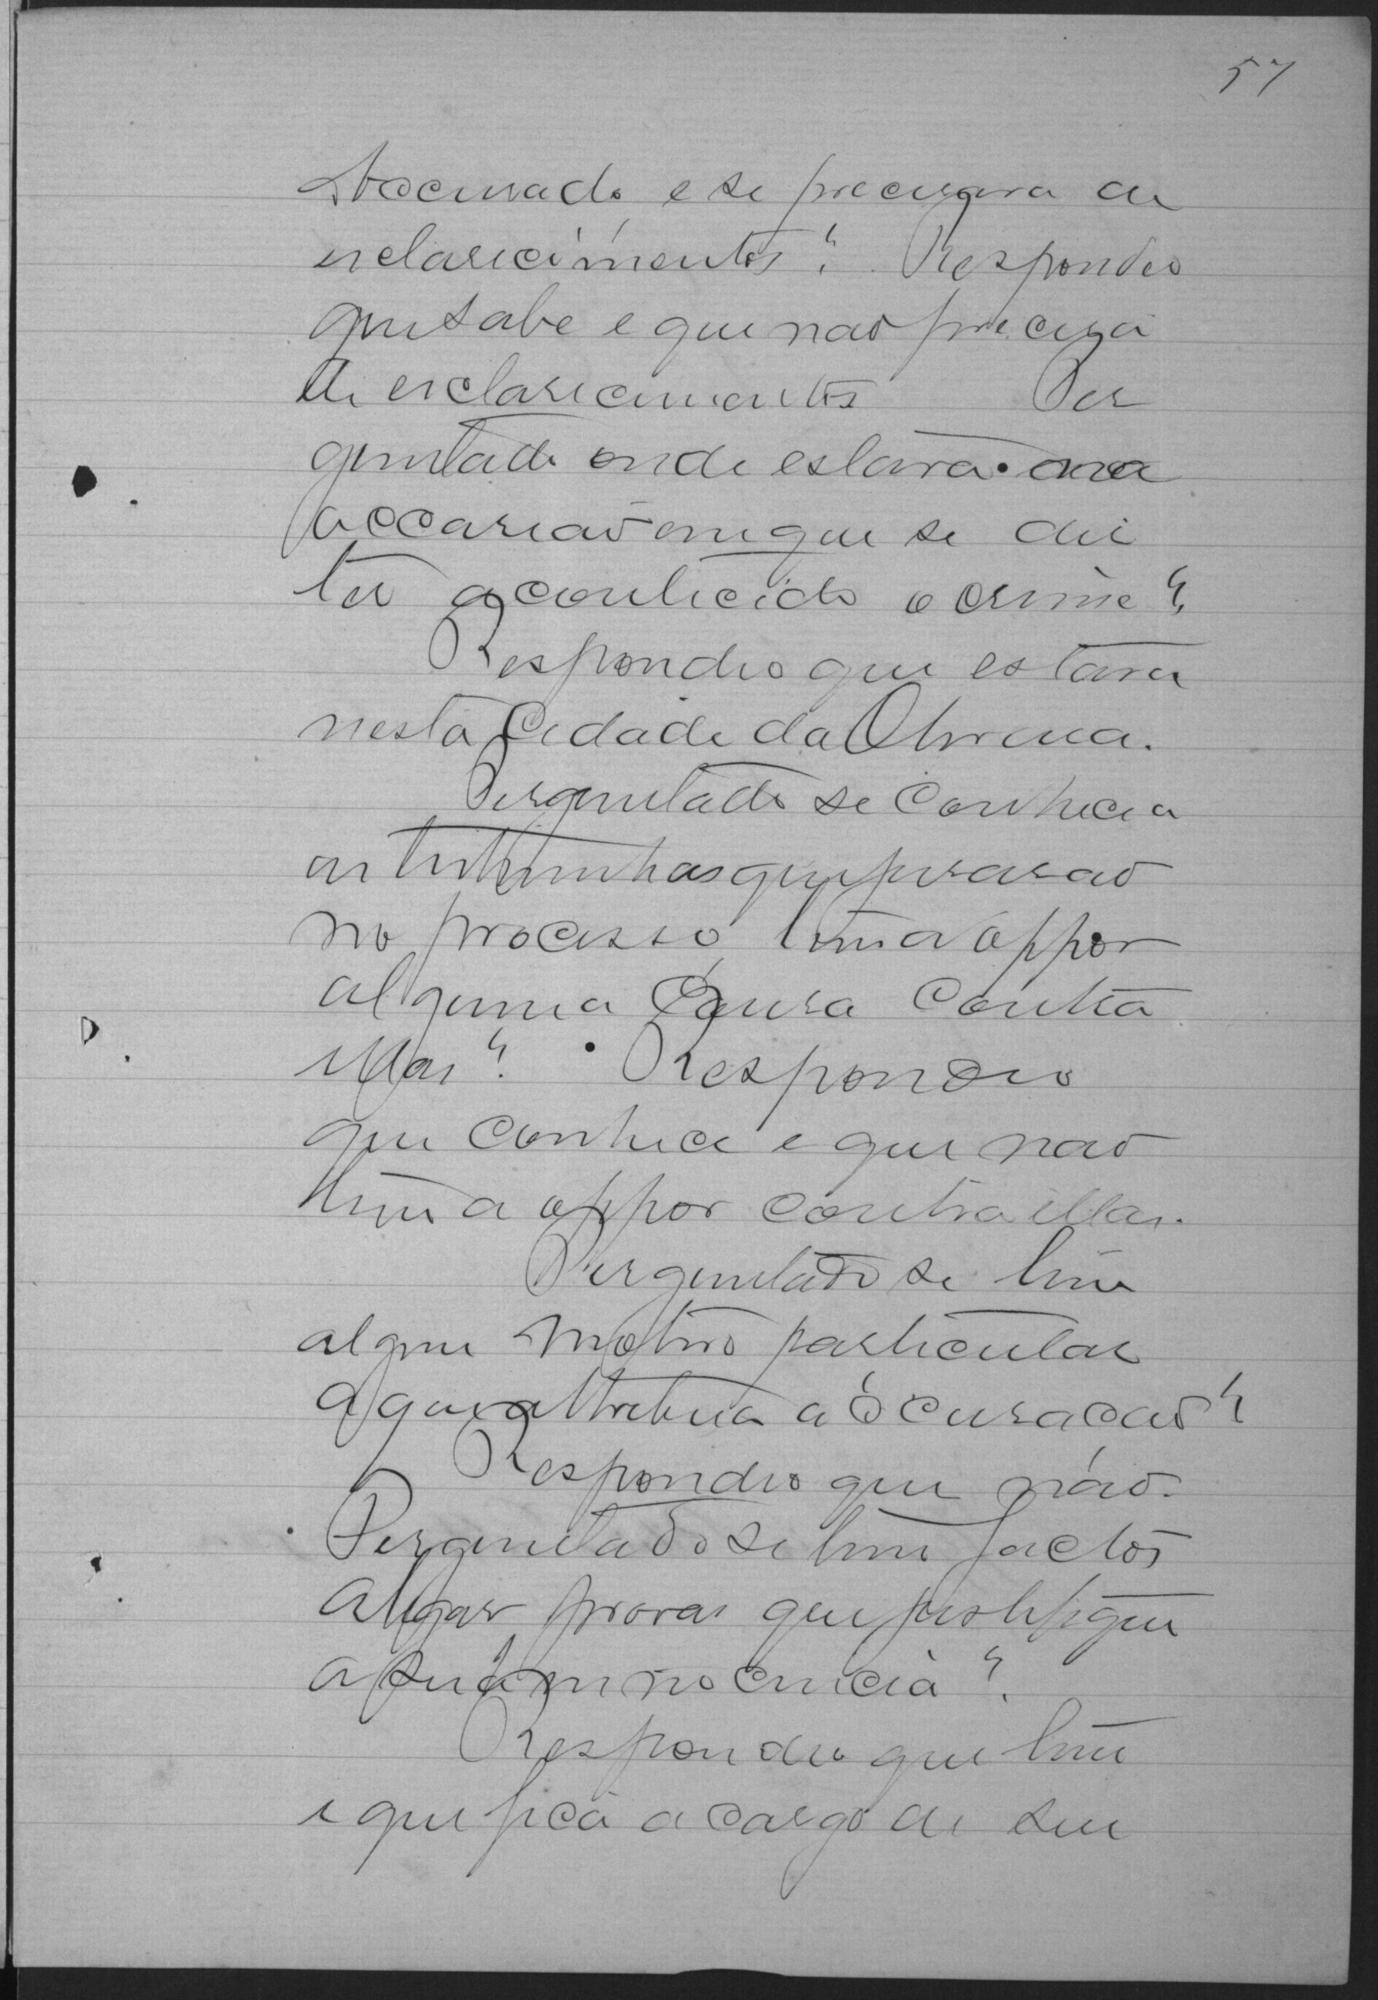 57
Accusado e se precisava de
esclarecimentos? Respondeo
que sabe e que não precisa
de esclarecimentos Per
guntado onde estava na
occasião em que se diz
ter acontecido o crime?
Respondeo que estava
nesta Cidade da
Perguntado se conhecia
as testimunhas que jurarão
no processo, tem a oppor
alguma Cousa Contra
ellas? Respondeo
que conhece e que não
tem a oppor contra ellas.
Perguntado se tem
algum motivo particular
a que attribua a accusacão?
Respondeo que não.
Perguntado se tem factos
provas que justifiquem
a sua innocencia?
Respondeo que tem
e que fica a cargo de seu